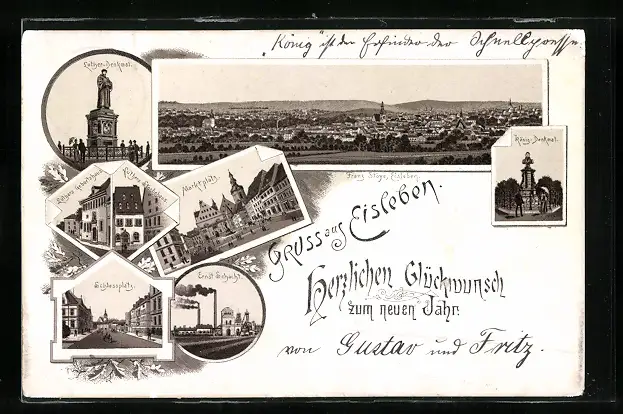 „König" ist der Erfinder der Schnellpresse
Luther-Denkmal.
König-Denkmal.
Franz Stoye, Eisleben.
Marktplatz.
Gruss aus Eisleben.
Schlossplatz.
Ernst Schacht.
Herzlichen Glückwunsch
zum neuen Jahr.
von Gustav und Fritz.